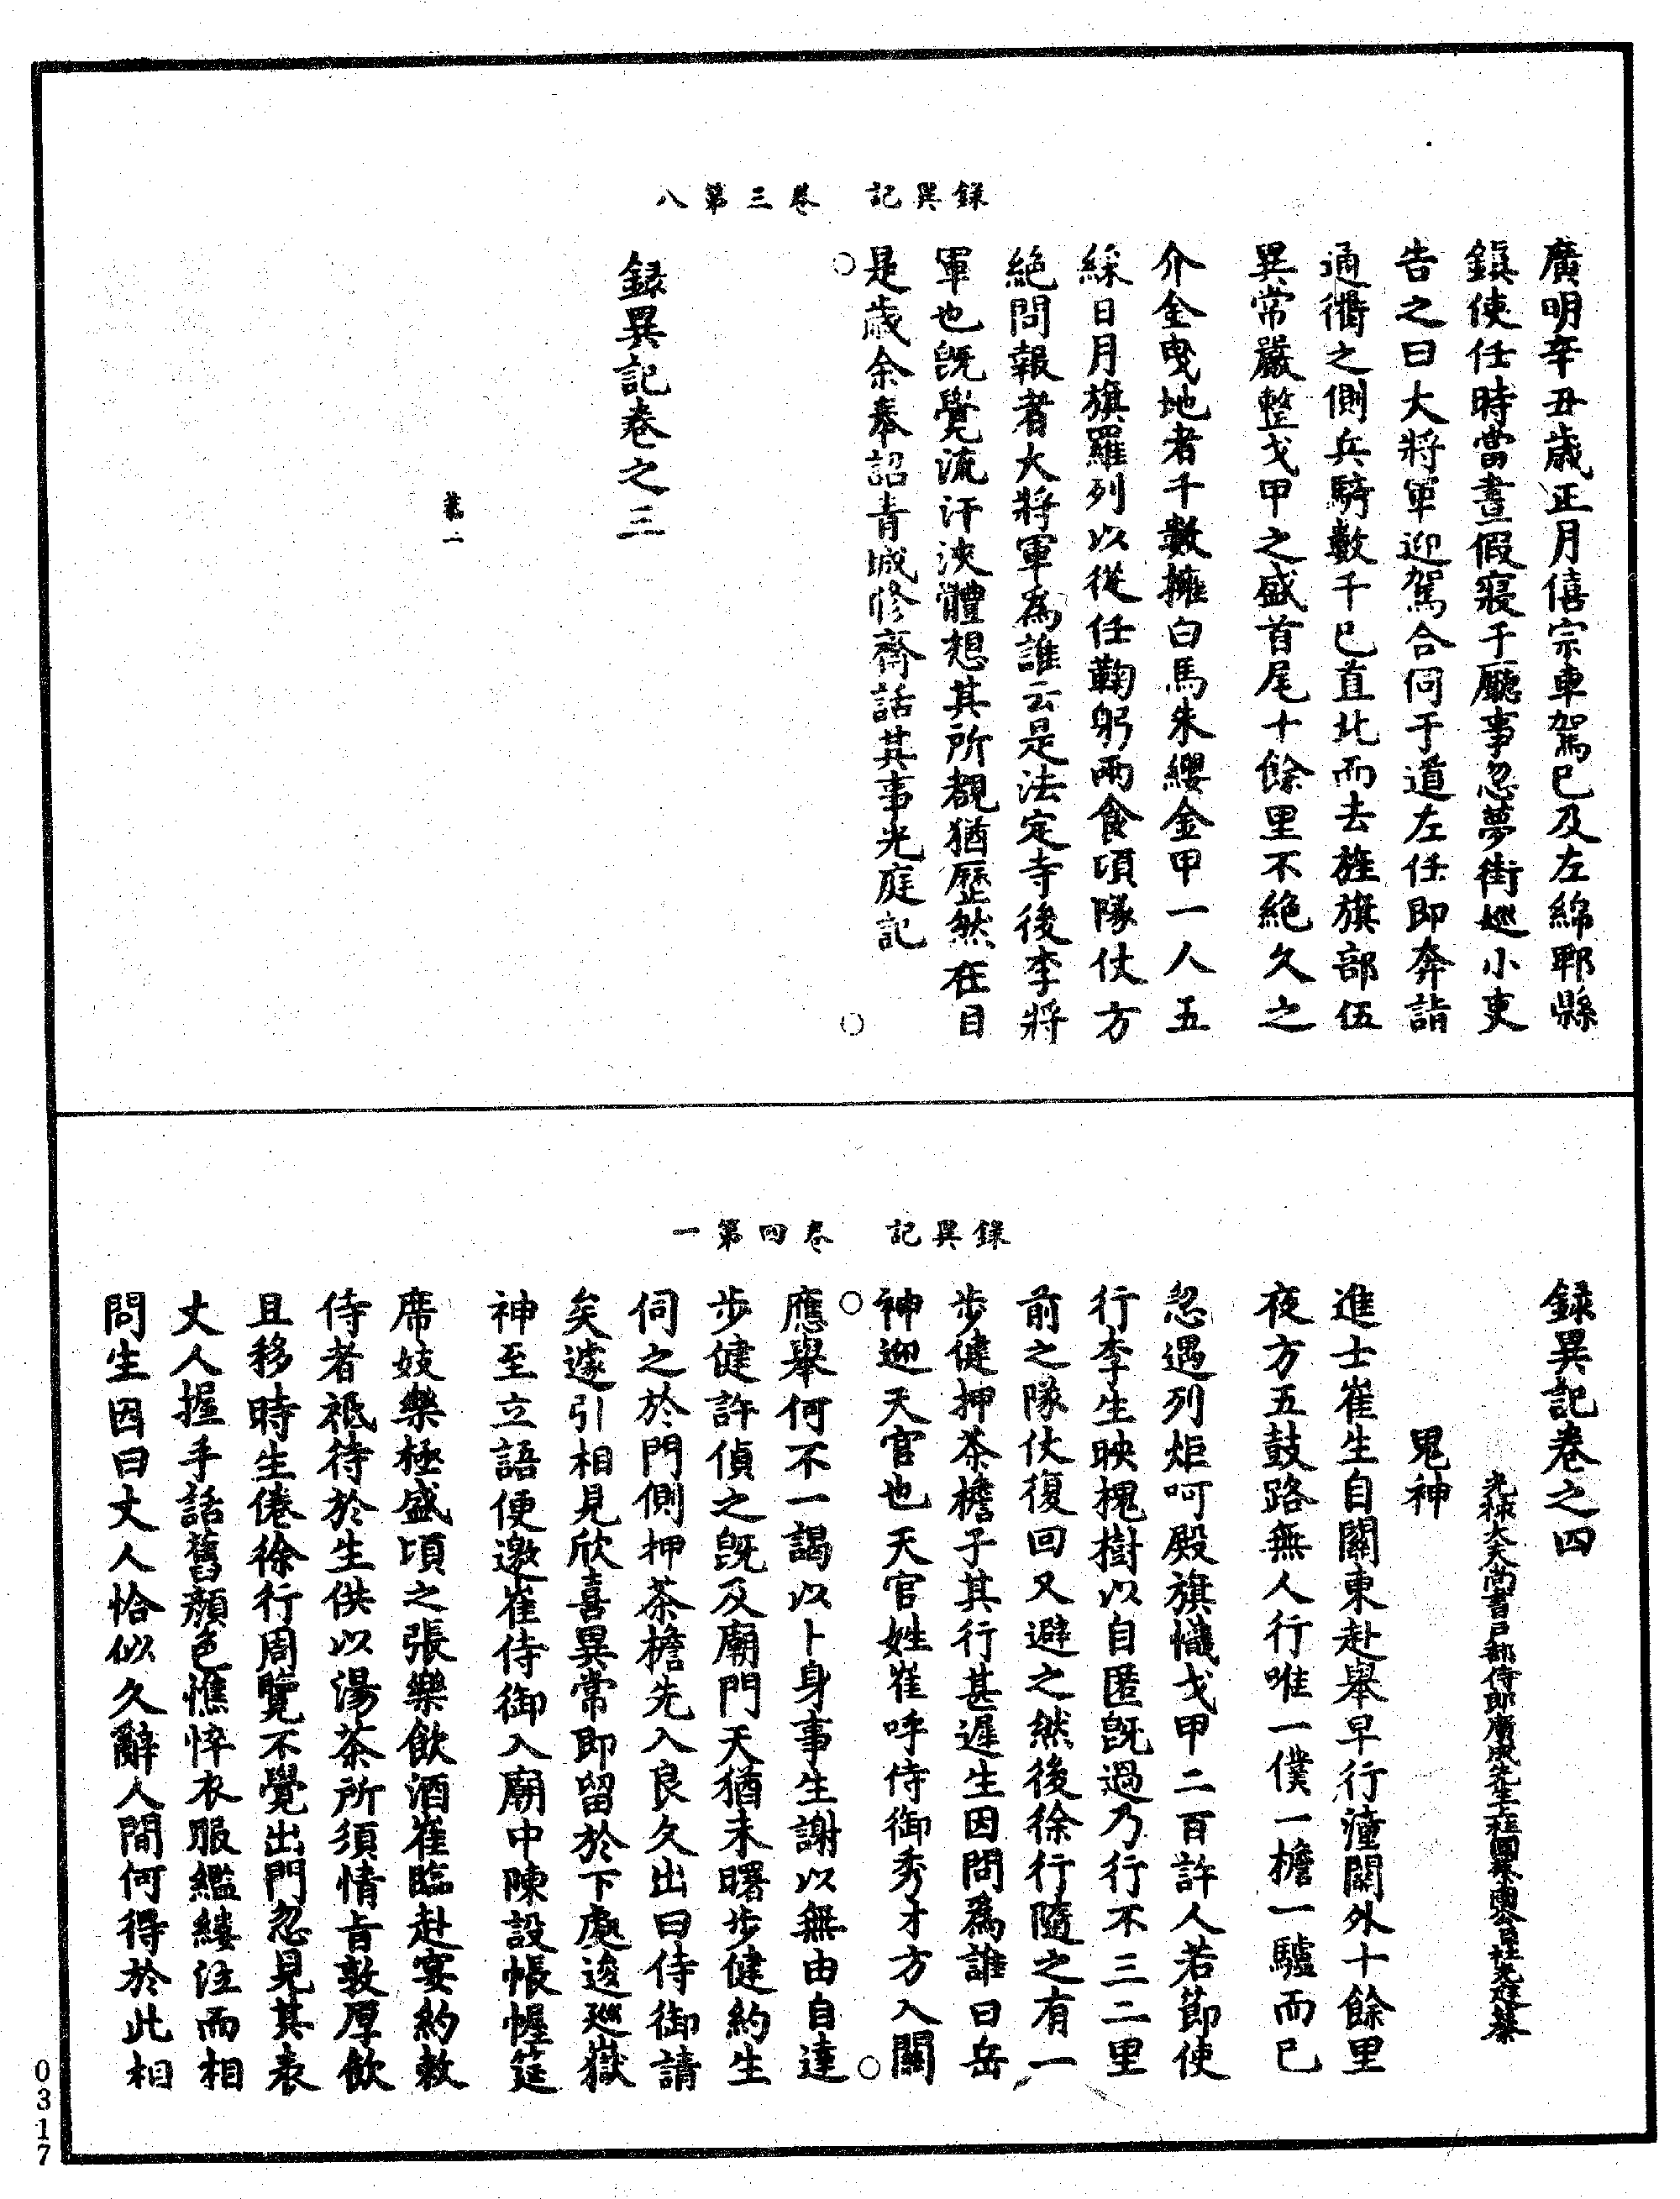 錄異記　卷三第八
廣明辛丑歲正月僖宗車駕已及左綿郫縣
鎮使任時當晝假寢于廳事忽夢街巡小吏
告之曰大將軍迎駕合伺于道左任即奔詣
通衢之側兵騎數千已直北而去旌旗部伍
異常嚴整戈甲之盛首尾十餘里不絕久之
介金曳地者千數擁白馬朱纓金甲一人五
綵日月旗羅列以從任鞠躬兩食頃隊仗方
絕問報者大將軍為誰云是法定寺後李將
軍也既覺流汗浹體想其所覩猶歷然在目
是歲余奉詔青城修齋話其事光庭記
錄異記卷之三
錄異記　卷四第一
錄異記卷之四
光祿大夫尚書戶部侍郎廣成先生上柱國蔡國公臣杜光庭纂
鬼神
進士崔生自關東赴舉早行潼關外十餘里
夜方五鼓路無人行唯一僕一檐一驢而已
忽遇列炬呵殿旗幟戈甲二百許人若節使
行李生映槐樹以自匿既過乃行不三二里
前之隊仗復回又避之然後徐行隨之有一
步健押茶檐子其行甚遲生因問爲誰曰岳
神迎天官也天官姓崔呼侍御秀才方入關
應舉何不一謁以卜身事生謝以無由自達
步健許偵之既及廟門天猶未曙步健約生
伺之於門側押茶檐先入良久出曰侍御請
矣遽引相見欣喜異常即留於下處逡廵嶽
神至立語便邀崔侍御入廟中陳設帳幄筵
席妓樂極盛頃之張樂飲酒崔臨赴宴約敕
侍者祗待於生供以湯茶所須情旨敦厚飲
且移時生倦徐行周覽不覺出門忽見其表
丈人握手話舊顏色憔悴衣服繿縷泣而相
問生因曰丈人恰似久辭人間何得於此相
0317